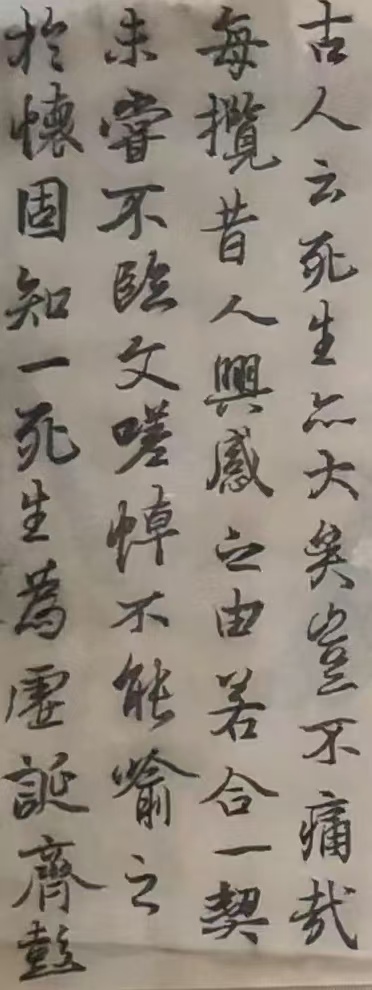 古人云死生亦大矣豈不痛哉
每攬昔人興感之由若合一契
未嘗不臨文嗟悼不能喻之
於懷固知一死生為虛誕齊彭